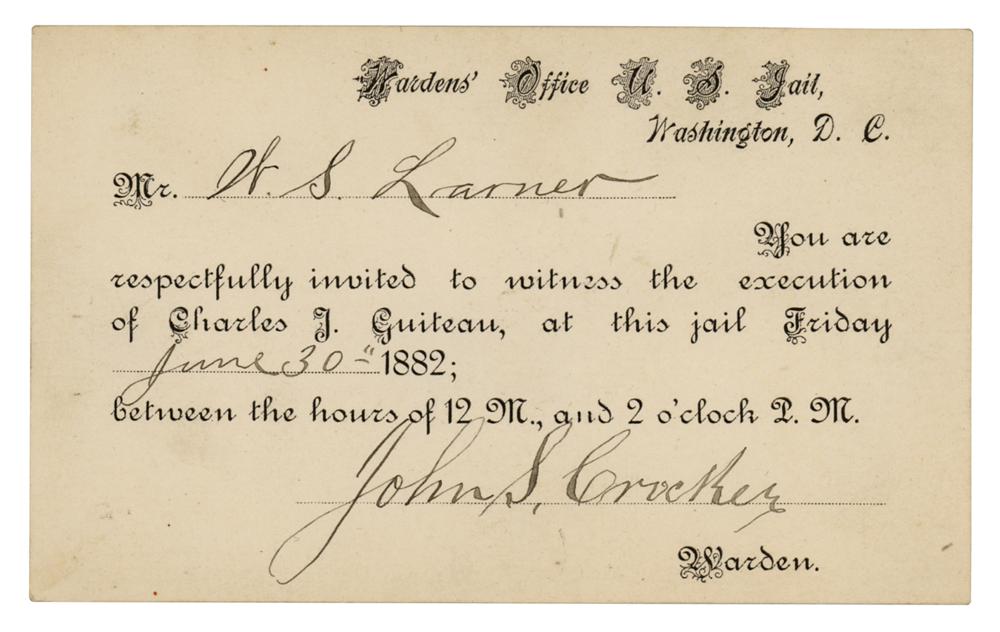 Wardens' Office U. S. Jail,
Washington, D. C.
Mr. W. S. Larner
You are
respectfully invited to witness the execution
of Charles J. Guiteau, at this jail Friday
June 30th 1882;
between the hours of 12 M., and 2 o'clock P. M.
John S. Crocker
Warden.